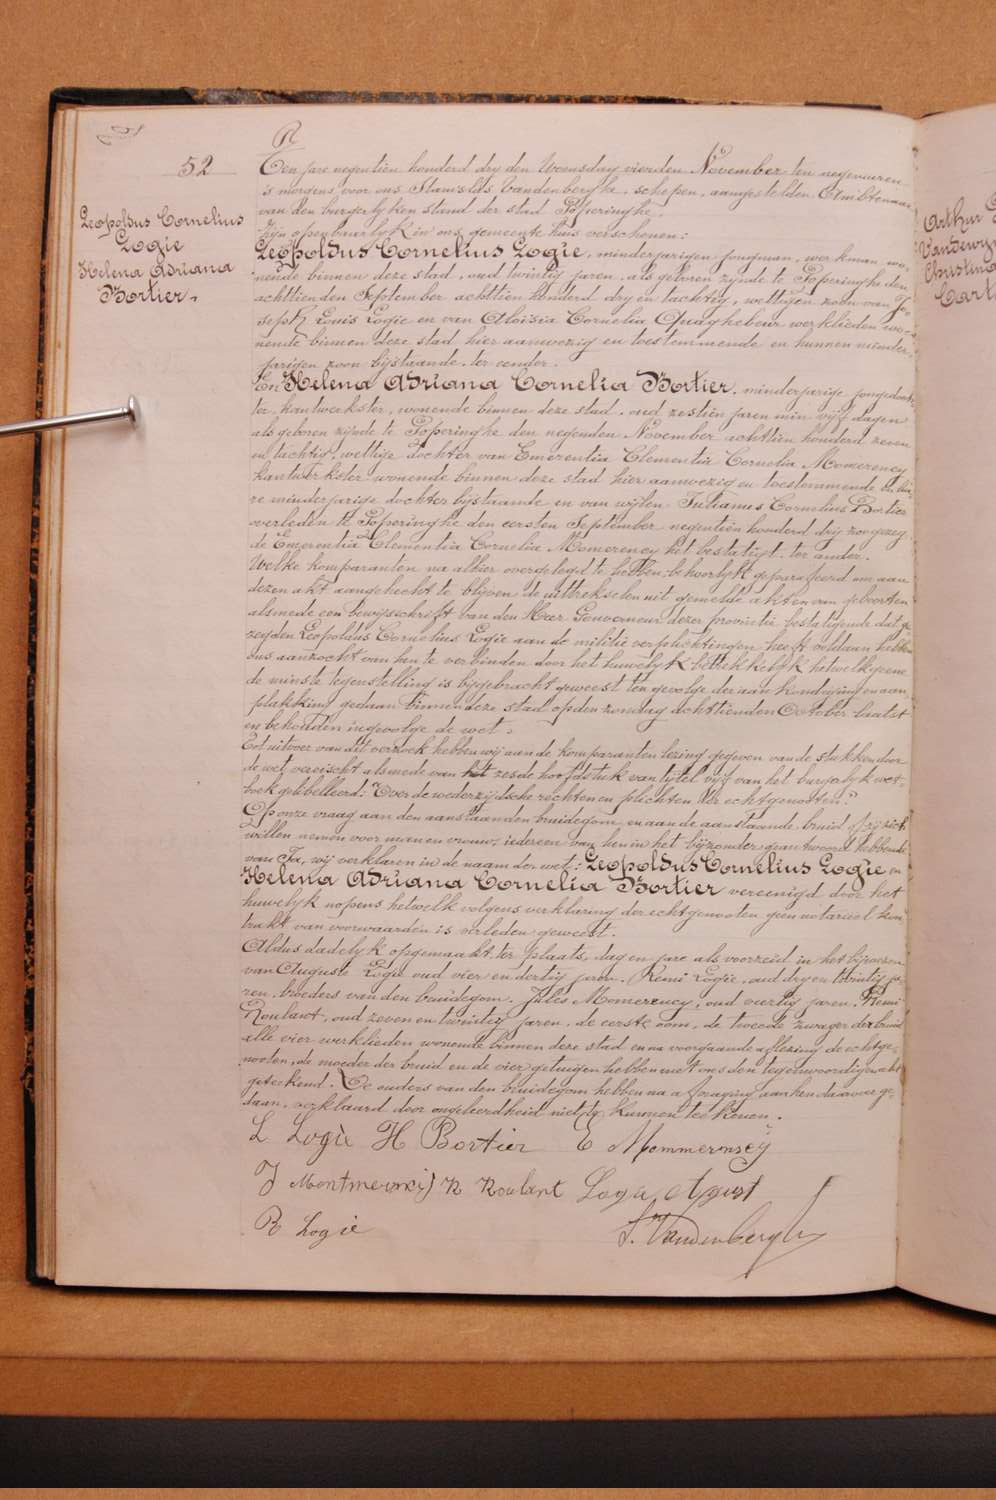 52
Leopoldus Cornelius
Logie
Helena Adriana
Bortier.
Ten jare negentien honderd dry den Woensdag vierden November ten negen uren
's morgens voor ons Stanislas Vandenberghe, schepen, aangestelden Ambtenaar
van den burgerlyken stand der stad Poperinghe.
Zijn openbaarlyk in ons gemeentehuis verschenen:
Leopoldus Cornelius Logie, minderjarigen jongman, werkman wo-
nende binnen deze stad, oud twintig jaren, als geboren zijnde te Poperinghe den
achttienden September achttien honderd dry en tachtig, wettigen zoon van Jo-
seph Louis Logie en van Aloisia Cornelia Quaghebeur werklieden wo-
nende binnen deze stad hier aanwezig en toestemmende en hunnen minder-
jarigen zoon bijstaande, ter eender.
En Helena Adriana Cornelia Bortier, minderjarige jongedoch-
ter, kantwerkster, wonende binnen deze stad, oud zestien jaren min vijf dagen
als geboren zijnde te Poperinghe den negenden November achttien honderd zeven
en tachtig, wettige dochter van Emerentia Clementia Cornelia Momerency
kantwerkster wonende binnen deze stad hier aanwezig en toestemmende en ha-
re minderjarige dochter bijstaande en van wijlen Julianus Cornelius Bortier
overleden te Poperinghe den eersten September negentien honderd drij zoo gezeg-
de Emerentia Clementia Cornelia Momerency het bestatigt. ter ander.
Welke komparanten na alhier overgelegd te hebben, behoorlyk geparafeerd om aan
dezen akt aangehecht te blijven de uittrekselen uit gemelde akten van geboorten
alsmede een bewijsschrift van den Heer Gouverneur dezer provincie bestatigende dat ge-
zegden Leopoldus Cornelius Logie aan de militie verplichtingen heeft voldaan hebben
ons aanzocht van hen te verbinden door het huwelyk betrekkelyk hetwelk geene
de minste tegenstelling is bijgebracht geweest ten gevolge der aankondiging en aan-
plakking gedaan binnen deze stad op den zondag achttienden October laatst
en behouden ingevolge de wet.
Tot uitvoer van dit verzoek hebben wij aan de komparanten lezing gegeven van de stukken door
de wet vereischt alsmede van het zesde hoofdstuk van tytel vijf van het burgerlyk wet-
boek getibelleerd: Over de wederzijdsche rechten en plichten der echtgenooten.
Op onze vraag aan den aanstaanden bruidegom en aan de aanstaande bruid of zij zich
willen nemen voor man en vrouw, iedereen van hen in het bijzonder geantwoord hebbende
van Ja, wij verklaren in de naam der wet: Leopoldus Cornelius Logie en
Helena Adriana Cornelia Bortier vereenigd door het
huwelyk nopens hetwelk volgens verklaring der echtgenooten geen notarieel kon-
trakt van voorwaarden is verleden geweest.
Aldus dadelyk opgemaakt ter plaats, dag en jare als voorzeid in het bijwezen
van Auguste Logie oud vier en dertig jaren, Remi Logie, oud dry en twintig ja-
ren, broeders van den bruidegom. Jules Momerency, oud veertig jaren, Remi
Roulant, oud zeven en twintig jaren, de eerste oom, de tweede zwager der bruid
alle vier werklieden wonende binnen deze stad en na voorgaande aflezing de echtge-
nooten, de moeder der bruid en de vier getuigen hebben met ons den tegenwoordigen akt
geteekend. De ouders van den bruidegom hebben na afvraging aan hen daarover ge-
daan, verklaard door ongeleerdheid niet te kunnen teekenen.
L Logie H Bortier E Mommerensey
J Montmerencij R Roulant Logie August
R Logie
S. Vandenberghe
Arthur
Vandewyn
Christina
Cart